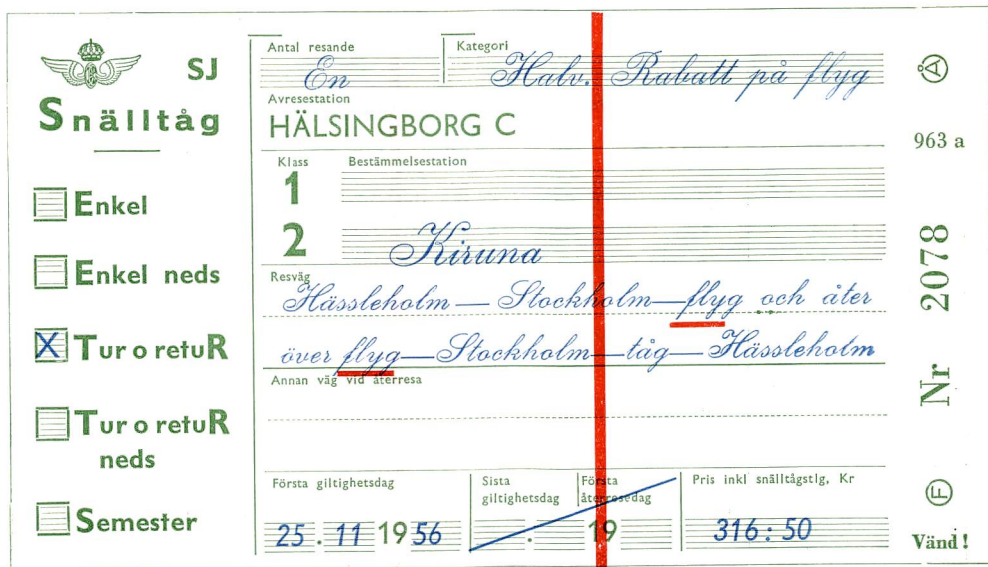 SJ
Snälltåg
Enkel
Enkel neds
X Tur o retuR
Tur o retuR
neds
Semester
Antal resande
En
Kategori
Halv. Rabatt på flyg
Avresestation
HÄLSINGBORG C
Klass
1
2
Bestämmelsestation
Kiruna
Resväg
Hässleholm — Stockholm — flyg och åter
över flyg — Stockholm — tåg — Hässleholm
Annan väg vid återresa
Första giltighetsdag
25 . 11 1956
Sista
giltighetsdag
.
Första
återresedag
19
Pris inkl snälltågstlg, Kr
316:50
Å
963 a
Nr 2078
F
Vänd!